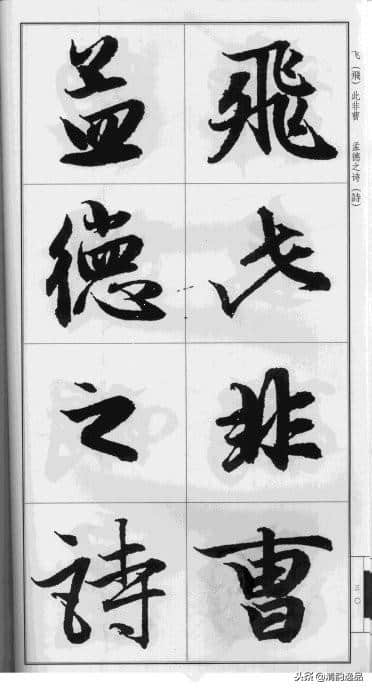 飞（飛）此非曹 孟德之诗（詩）
飛此非曹
孟德之詩
三〇
头条@清韵逸品